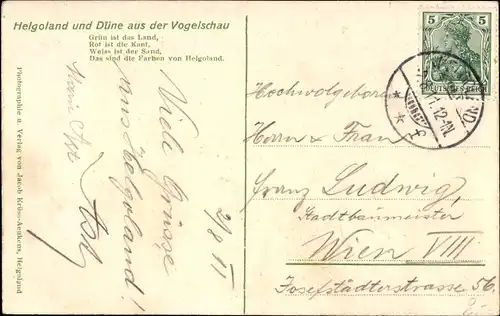 Helgoland und Düne aus der Vogelschau
Grün ist das Land,
Rot ist die Kant,
Weiss ist der Sand,
Das sind die Farben von Helgoland.
Photographie u. Verlag von Jacob Krüss-Aeukens, Helgoland
Viele Grüsse
aus Helgoland!
29/8 11
5 5
DEUTSCHES REICH
Hochwolgeboren
Herrn & Frau
Franz Ludwig,
Stadtbaumeister
Wien VIII
Josefstädterstrasse 56.